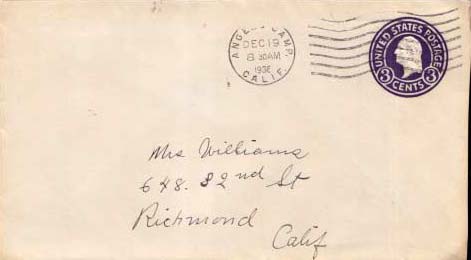 ANGELS CAMP.
DEC 19
8 30AM
1936
CALIF.
UNITED STATES POSTAGE
3 CENTS 3
Mrs Williams
648. 32nd St
Richmond
Calif